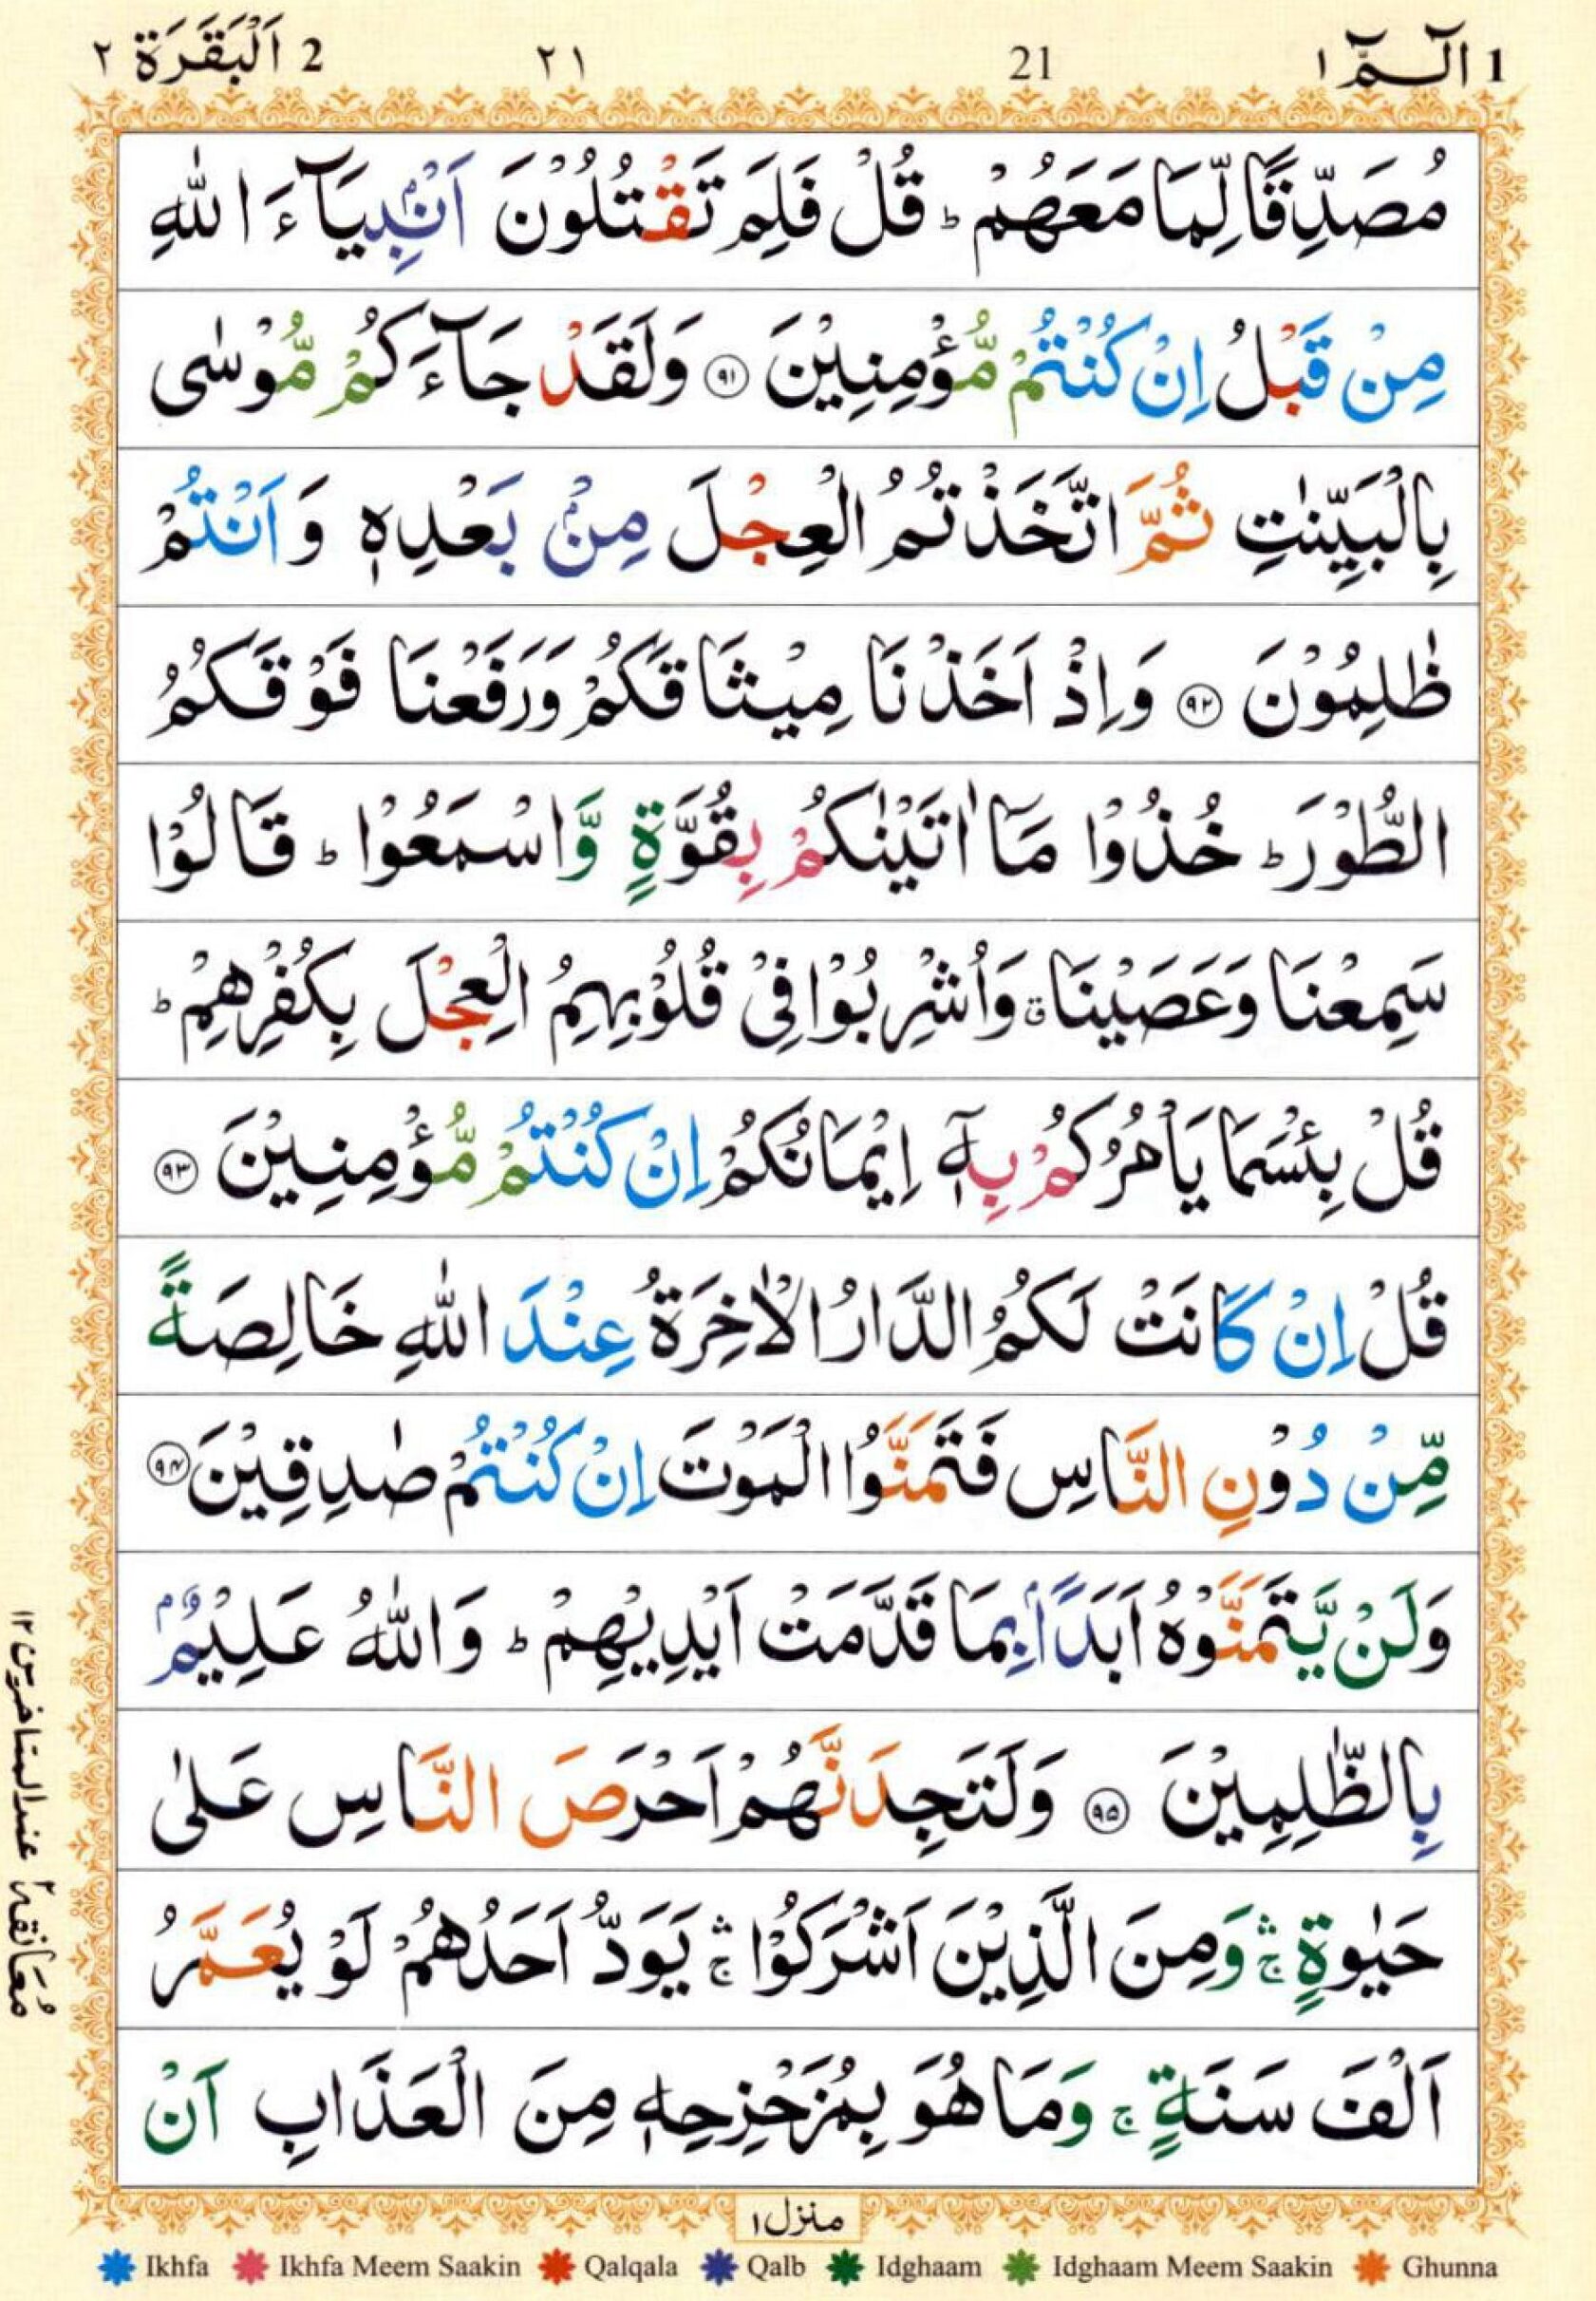 1 الٓـمّٓ ١ 21 ٢١ 2 اَلْبَقَرَة ٢
مُصَدِّقًا لِّمَا مَعَهُمْ ؕ قُلْ فَلِمَ تَقْتُلُوْنَ اَنْۢبِيَآءَ اللّٰهِ
مِنْ قَبْلُ اِنْ كُنْتُمْ مُّؤْمِنِيْنَ ۝٩١ وَلَقَدْ جَآءَكُمْ مُّوْسٰى
بِالْبَيِّنٰتِ ثُمَّ اتَّخَذْتُمُ الْعِجْلَ مِنْۢ بَعْدِهٖ وَاَنْتُمْ
ظٰلِمُوْنَ ۝٩٢ وَاِذْ اَخَذْنَا مِيْثَاقَكُمْ وَرَفَعْنَا فَوْقَكُمُ
الطُّوْرَ ؕ خُذُوْا مَاۤ اٰتَيْنٰكُمْ بِقُوَّةٍ وَّاسْمَعُوْا ؕ قَالُوْا
سَمِعْنَا وَعَصَيْنَا ۗ وَاُشْرِبُوْا فِيْ قُلُوْبِهِمُ الْعِجْلَ بِكُفْرِهِمْ ؕ
قُلْ بِئْسَمَا يَاْمُرُكُمْ بِهٖۤ اِيْمَانُكُمْ اِنْ كُنْتُمْ مُّؤْمِنِيْنَ ۝٩٣
قُلْ اِنْ كَانَتْ لَكُمُ الدَّارُ الْاٰخِرَةُ عِنْدَ اللّٰهِ خَالِصَةً
مِّنْ دُوْنِ النَّاسِ فَتَمَنَّوُا الْمَوْتَ اِنْ كُنْتُمْ صٰدِقِيْنَ ۝٩٤
وَلَنْ يَّتَمَنَّوْهُ اَبَدًاۢ بِمَا قَدَّمَتْ اَيْدِيْهِمْ ؕ وَاللّٰهُ عَلِيْمٌۢ
بِالظّٰلِمِيْنَ ۝٩٥ وَلَتَجِدَنَّهُمْ اَحْرَصَ النَّاسِ عَلٰى
حَيٰوةٍ ۛۚ وَمِنَ الَّذِيْنَ اَشْرَكُوْا ۛۚ يَوَدُّ اَحَدُهُمْ لَوْ يُعَمَّرُ
اَلْفَ سَنَةٍ ۚ وَمَا هُوَ بِمُزَحْزِحِهٖ مِنَ الْعَذَابِ اَنْ
معانقة ٢ عند المتاخرين ١٢
منزل ١
Ikhfa Ikhfa Meem Saakin Qalqala Qalb Idghaam Idghaam Meem Saakin Ghunna